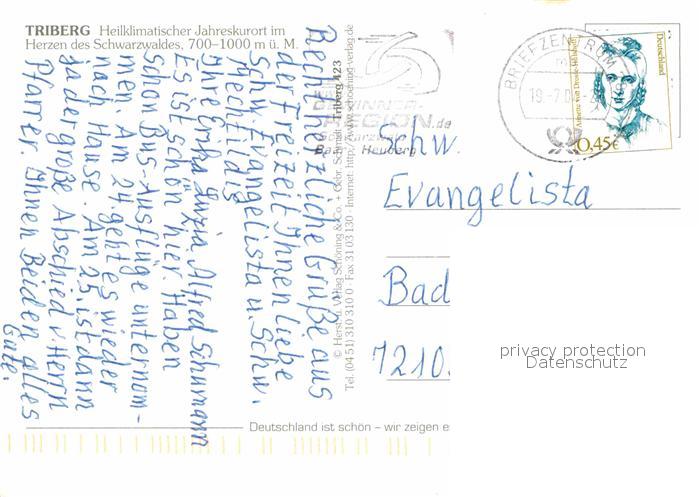 TRIBERG Heilklimatischer Jahreskurort im
Herzen des Schwarzwaldes, 700–1000 m ü. M.
Recht herzliche Grüße aus
der Freizeit Ihnen liebe
Schw. Evangelista u. Schw.
Mechtildis
Ihre Erika Luzia Alfred Schumann
Es ist schön hier. Haben
schon Bus-Ausflüge unternom-
men. Am 24. geht es wieder
nach Hause. Am 25. ist dann
ja der große Abschied v. Herrn
Pfarrer. Ihnen Beiden alles
Gute.
© Herst. u. Verlag Schöning & Co. + Gebr. Schmidt · Triberg 423
Tel. (04 51) 310 310 0 · Fax 31 03 130 · Internet: http://www.schoening-verlag.de
Deutschland ist schön – wir zeigen es
GEWINNER-
REGION.de
Schwarzwald
Baar Heuberg
BRIEFZENTRUM
Annette von Droste-Hülshoff
Deutschland
0,45€
Schw.
Evangelista
Bad
7210.
privacy protection
Datenschutz